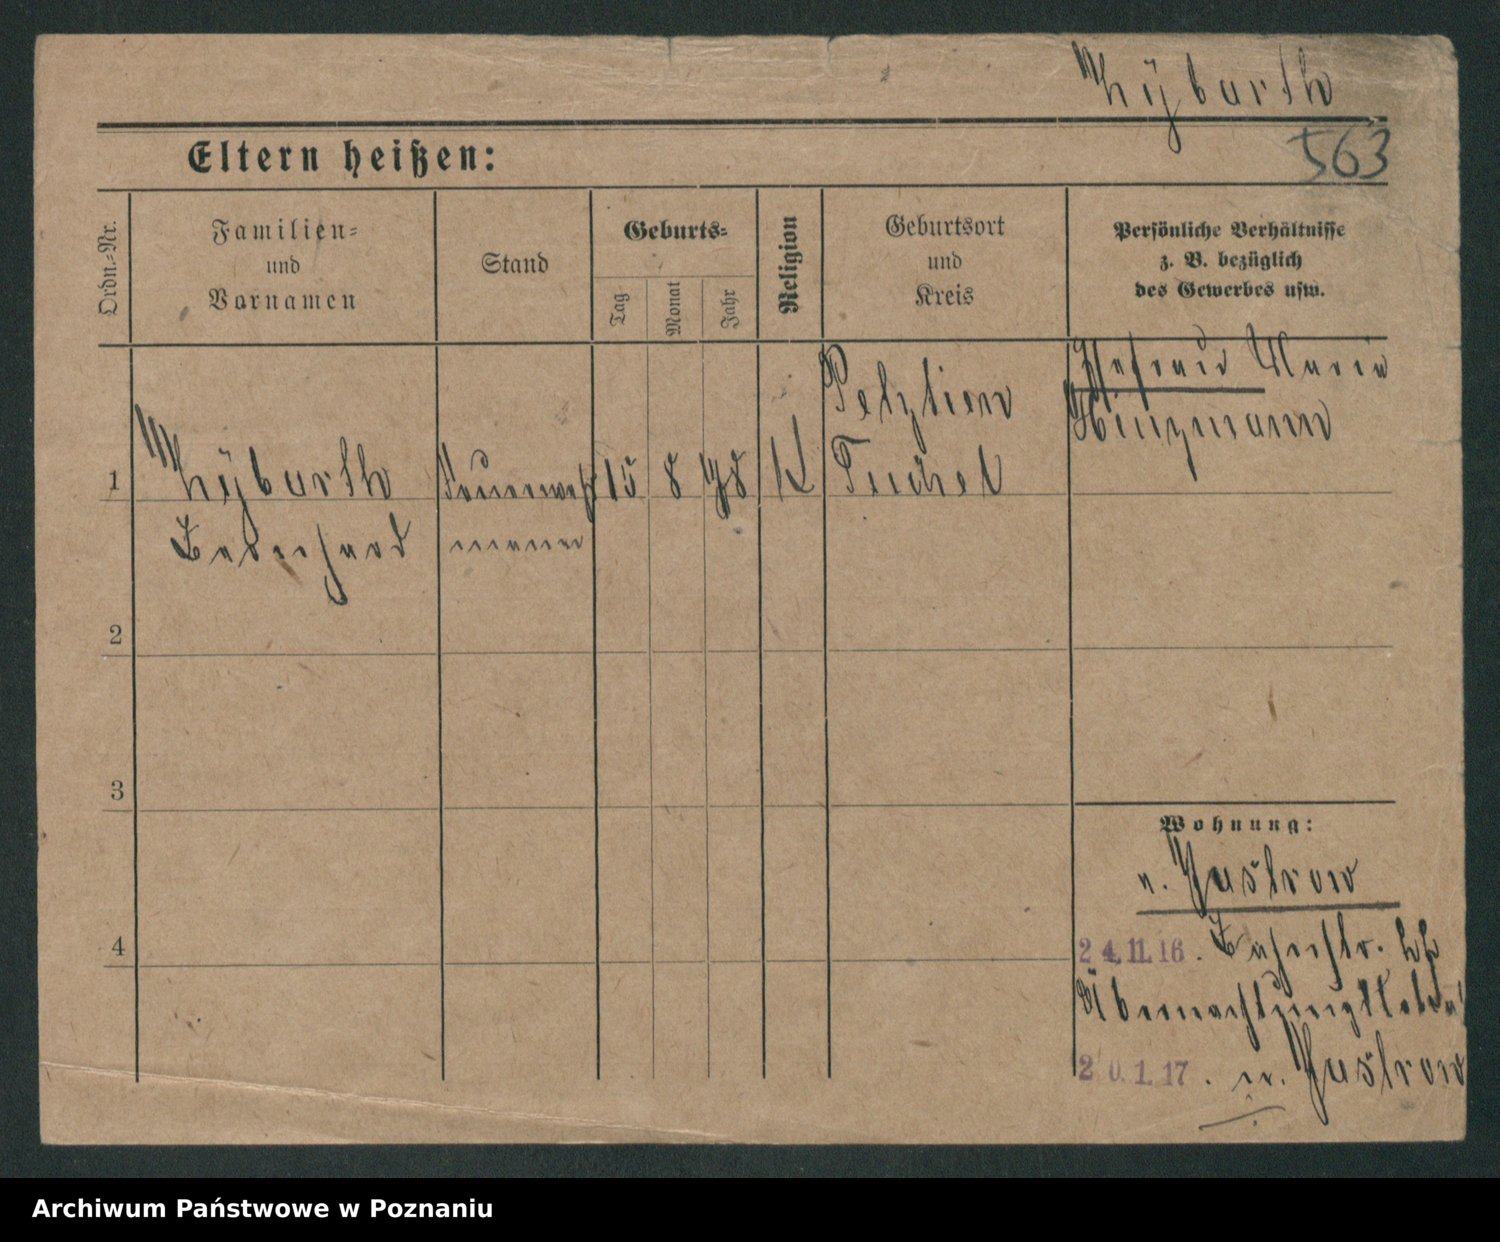 Zÿbarth
563
Eltern heißen:
Ordn.-Nr.
Familien-
und
Vornamen
Stand
Geburts-
Tag
Monat
Jahr
Religion
Geburtsort
und
Kreis
Persönliche Verhältnisse
z. B. bezüglich
des Gewerbes usw.
1
Zÿbarth
Bernhard
Feuerwehr
mann
15
8
78
K
Petztien
Tuchel
Ehefrau Marie
Hinzmann
2
3
4
Wohnung:
n. Jastrow
24.11.16.
20.1.17. n. Jastrow
Archiwum Państwowe w Poznaniu